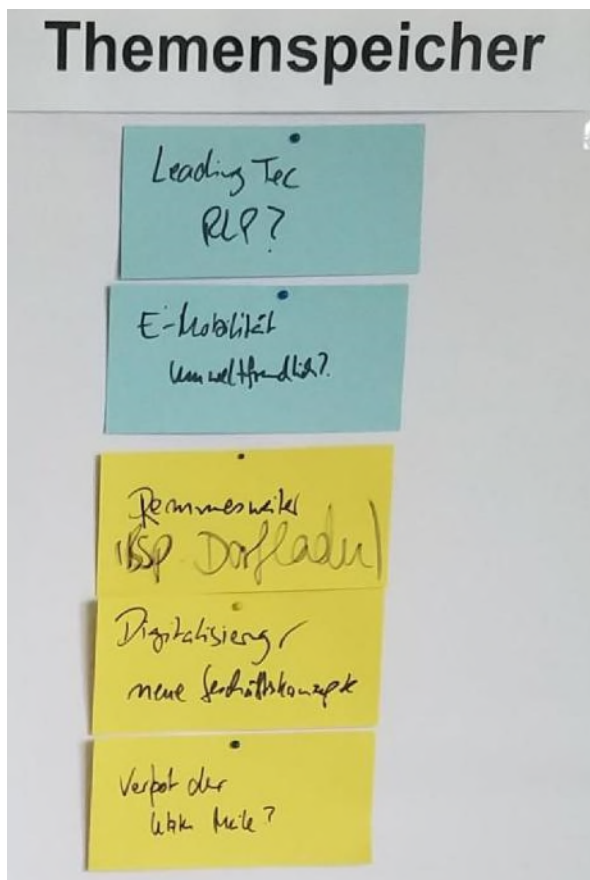 Themenspeicher
Leading Tec
RLP?
E-Mobilität
Umweltfreundlich?
Remmesweiler
(BSP. Dorfladen)
Digitalisierung /
neue Geschäftskonzepte
Verbot der
letzten Meile?